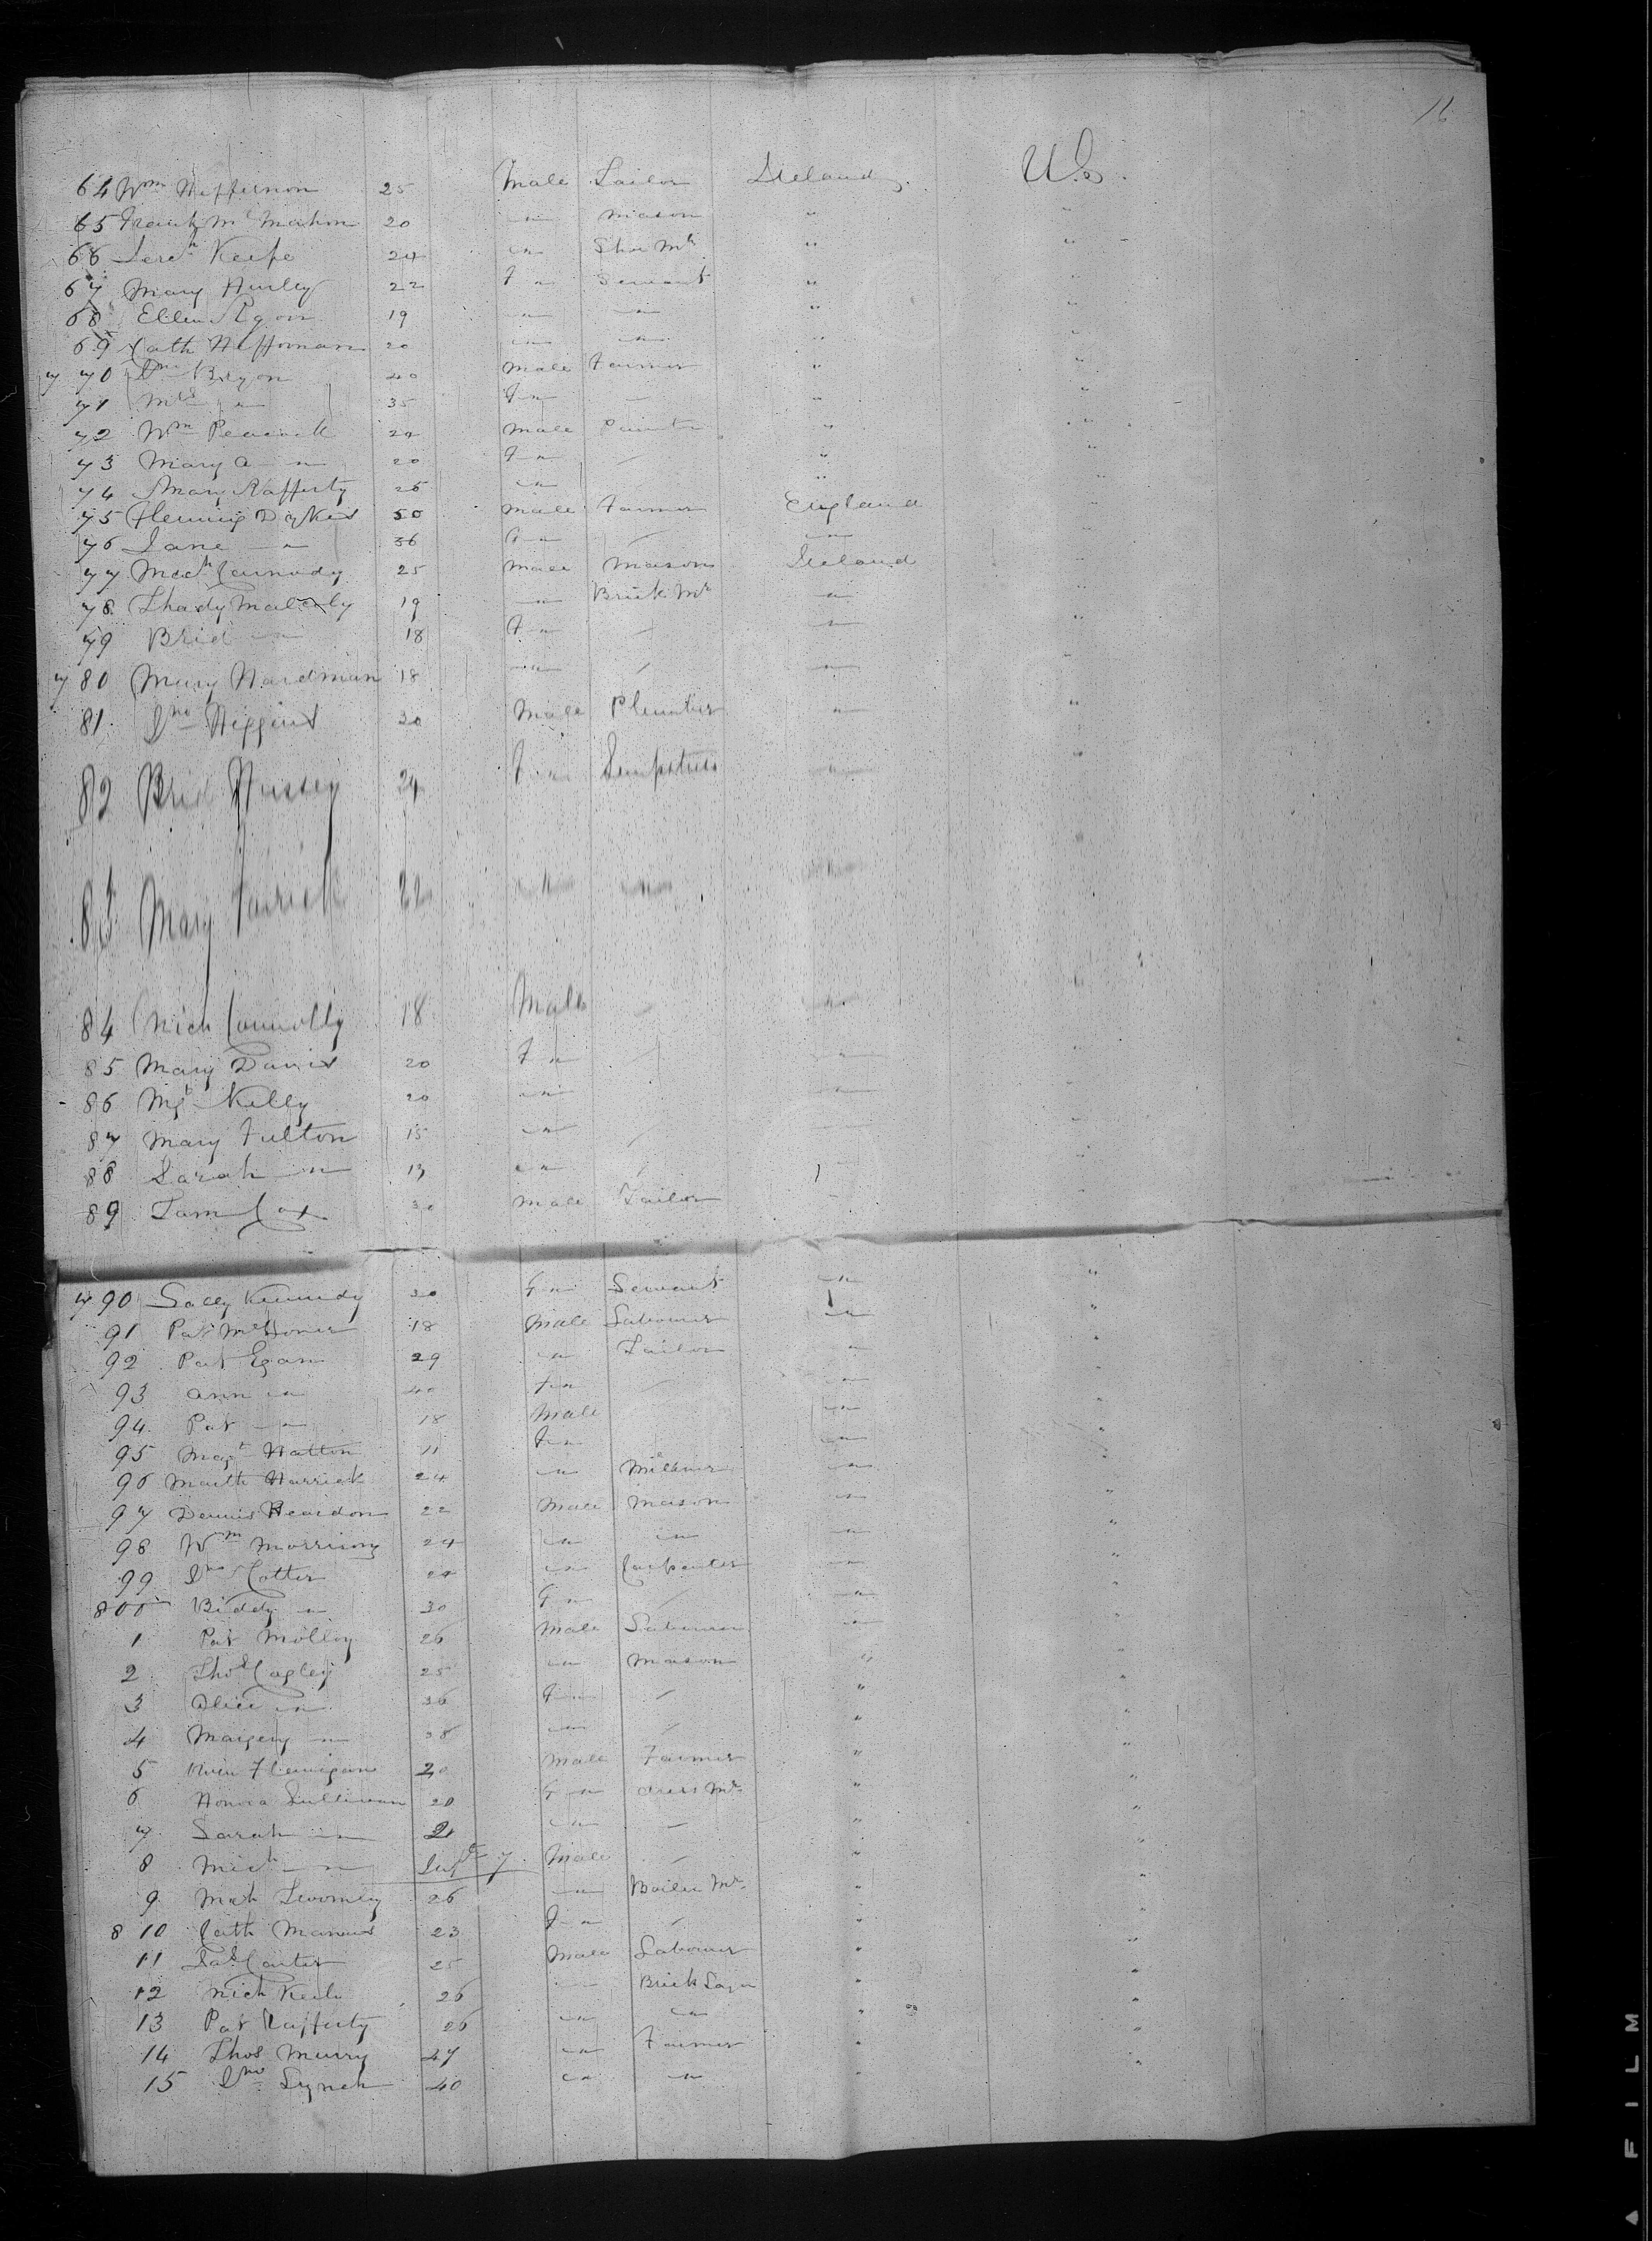 16
64 Wm Heffernon 25 Male Tailor Ireland U.S.
65 Frank McMahon 20 " Mason " "
66 Jerch Keefe 24 " Shoe Mkr " "
67 Mary Hurley 22 F " Servant " "
68 Ellen Ryan 19 " " " "
69 Cath Heffernan 20 " " " "
7 70 Jno Bryon 40 Male Farmer " "
71 Mrs " 35 F " " "
72 Wm Peacock 24 Male Painter " "
73 Mary A " 20 F " / " "
74 Mary Rafferty 26 " / " "
75 Fleming Dykes 50 Male Farmer England "
76 Jane " 36 F " / " "
77 Mich Kennedy 25 Male Mason Ireland "
78 Thady 19 " Brick Mr " "
79 Brid " 18 F " / " "
7 80 Mary Hardman 18 " / " "
81 Jno Higgins 30 Male " "
82 Brid Hussey 24 F " Sempstress " "
83 Mary 22 " " " "
84 Mich Connolly 18 Male / " "
85 Mary Davis 20 F " / " "
86 Mgt Kelly 20 " " "
87 Mary Fulton 15 " / " "
88 Sarah " 13 " / " "
89 Tom Cox 30 Male Tailor " "
7 90 Sally Kennedy 30 F " Servant " "
91 Pat 18 Male Labourer " "
92 Pat Egan 29 " Tailor " "
93 Ann " 40 F " / " "
94 Pat " 18 Male " "
95 Magt Hatton 11 F " " "
96 Harrick 24 " Milliner " "
97 Dennis Reardon 22 Male Mason " "
98 Wm Morrisony 24 " " " "
99 Jno Cotter 24 " Carpenter " "
800 Biddy " 30 F " / " "
1 Pat Molloy 26 Male Labourer " "
2 Thos Cagley 25 " Mason " "
3 Alice " 36 F " / " "
4 Margery " 38 " / " "
5 Flannigan 20 Male Farmer " "
6 Honora Sullivan 20 F " dress Mr " "
7 Sarah " 2 " / " "
8 Mich " Inft 7 Male / " "
9 Mich Twomley 26 " Boiler Mr " "
8 10 Cath Manus 23 F " / " "
11 Jas Carter 25 Male Labourer " "
12 Mich 26 " Brick Layer " "
13 Pat Rafferty 26 " " " "
14 Thos Murry 47 " Farmer " "
15 Jno Lynch 40 " " " "
FILM